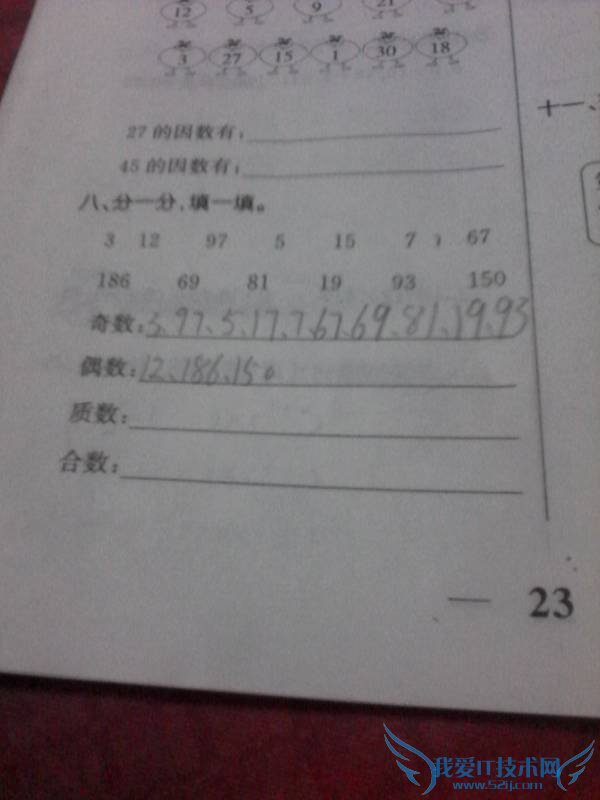 12 5 9 21
3 27 15 1 30 18
27 的因数有：
45 的因数有：
八、分一分，填一填。
3 12 97 5 15 7 67
186 69 81 19 93 150
奇数：3、97、5、17、7、67、69、81、19、93
偶数：12、186、150
质数：
合数：
十一、
— 23
我爱IT技术网
www.52ij.com